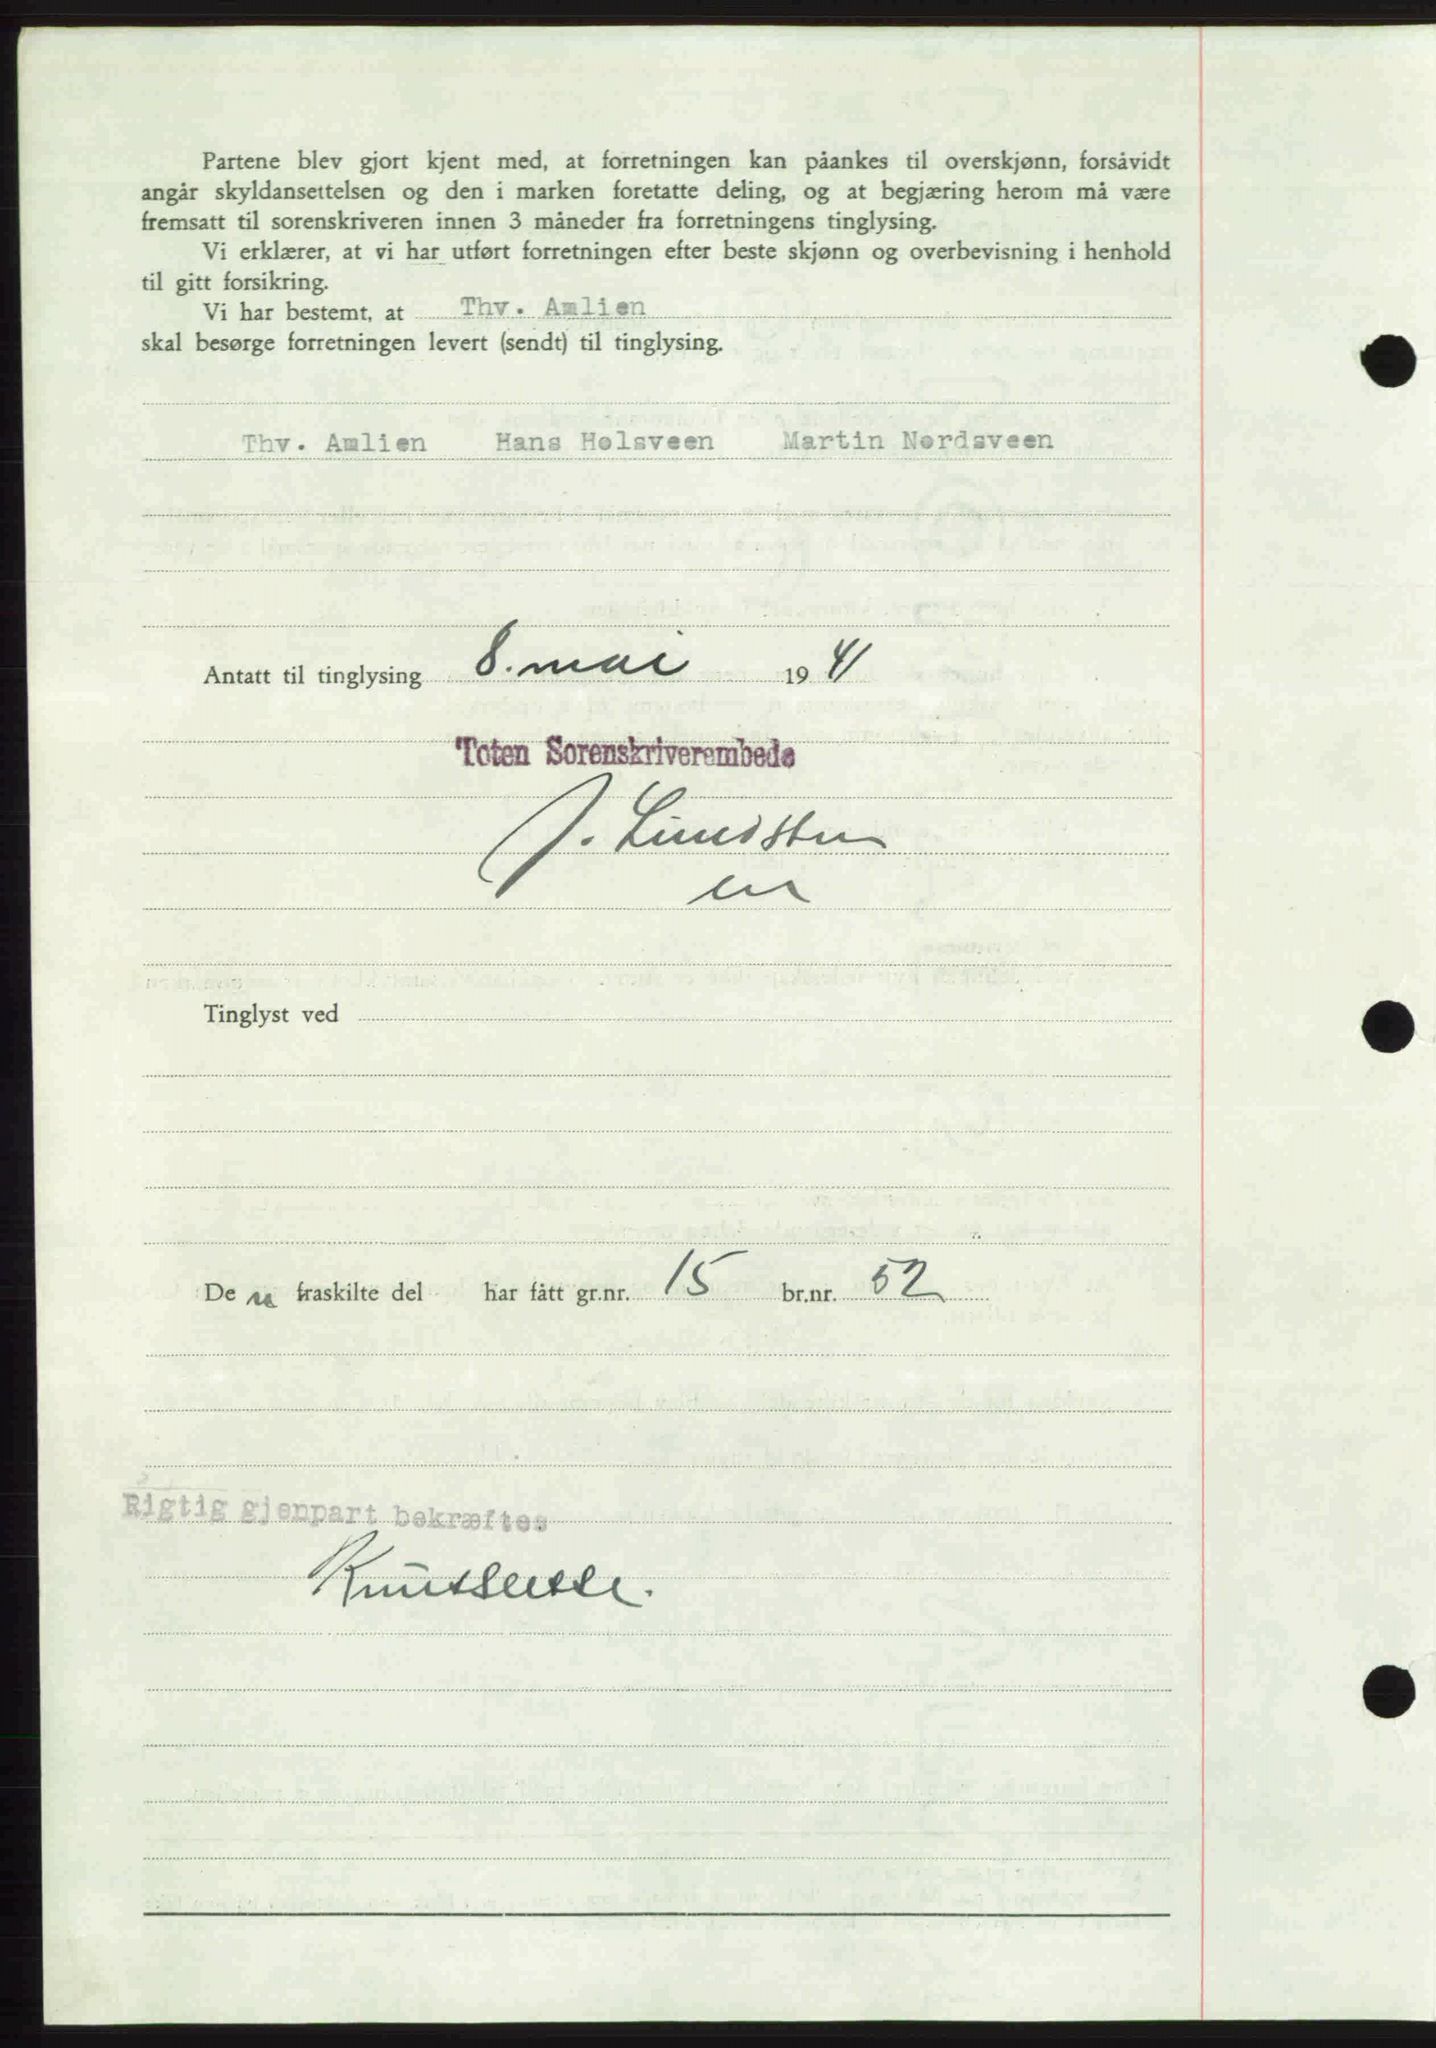 Partene blev gjort kjent med, at forretningen kan påankes til overskjønn, forsåvidt
angår skyldansettelsen og den i marken foretatte deling, og at begjæring herom må være
fremsatt til sorenskriveren innen 3 måneder fra forretningens tinglysing.
Vi erklærer, at vi har utført forretningen efter beste skjønn og overbevisning i henhold
til gitt forsikring.
Vi har bestemt, at Thv. Amlien
skal besørge forretningen levert (sendt) til tinglysing.
Thv. Amlien Hans Holsveen Martin Nordsveen
Antatt til tinglysing 8. mai 1941
Toten Sorenskriverembede
J. Lundsten
Tinglyst ved
De n fraskilte del har fått gr.nr. 15 br.nr. 52
Rigtig gjenpart bekræftes